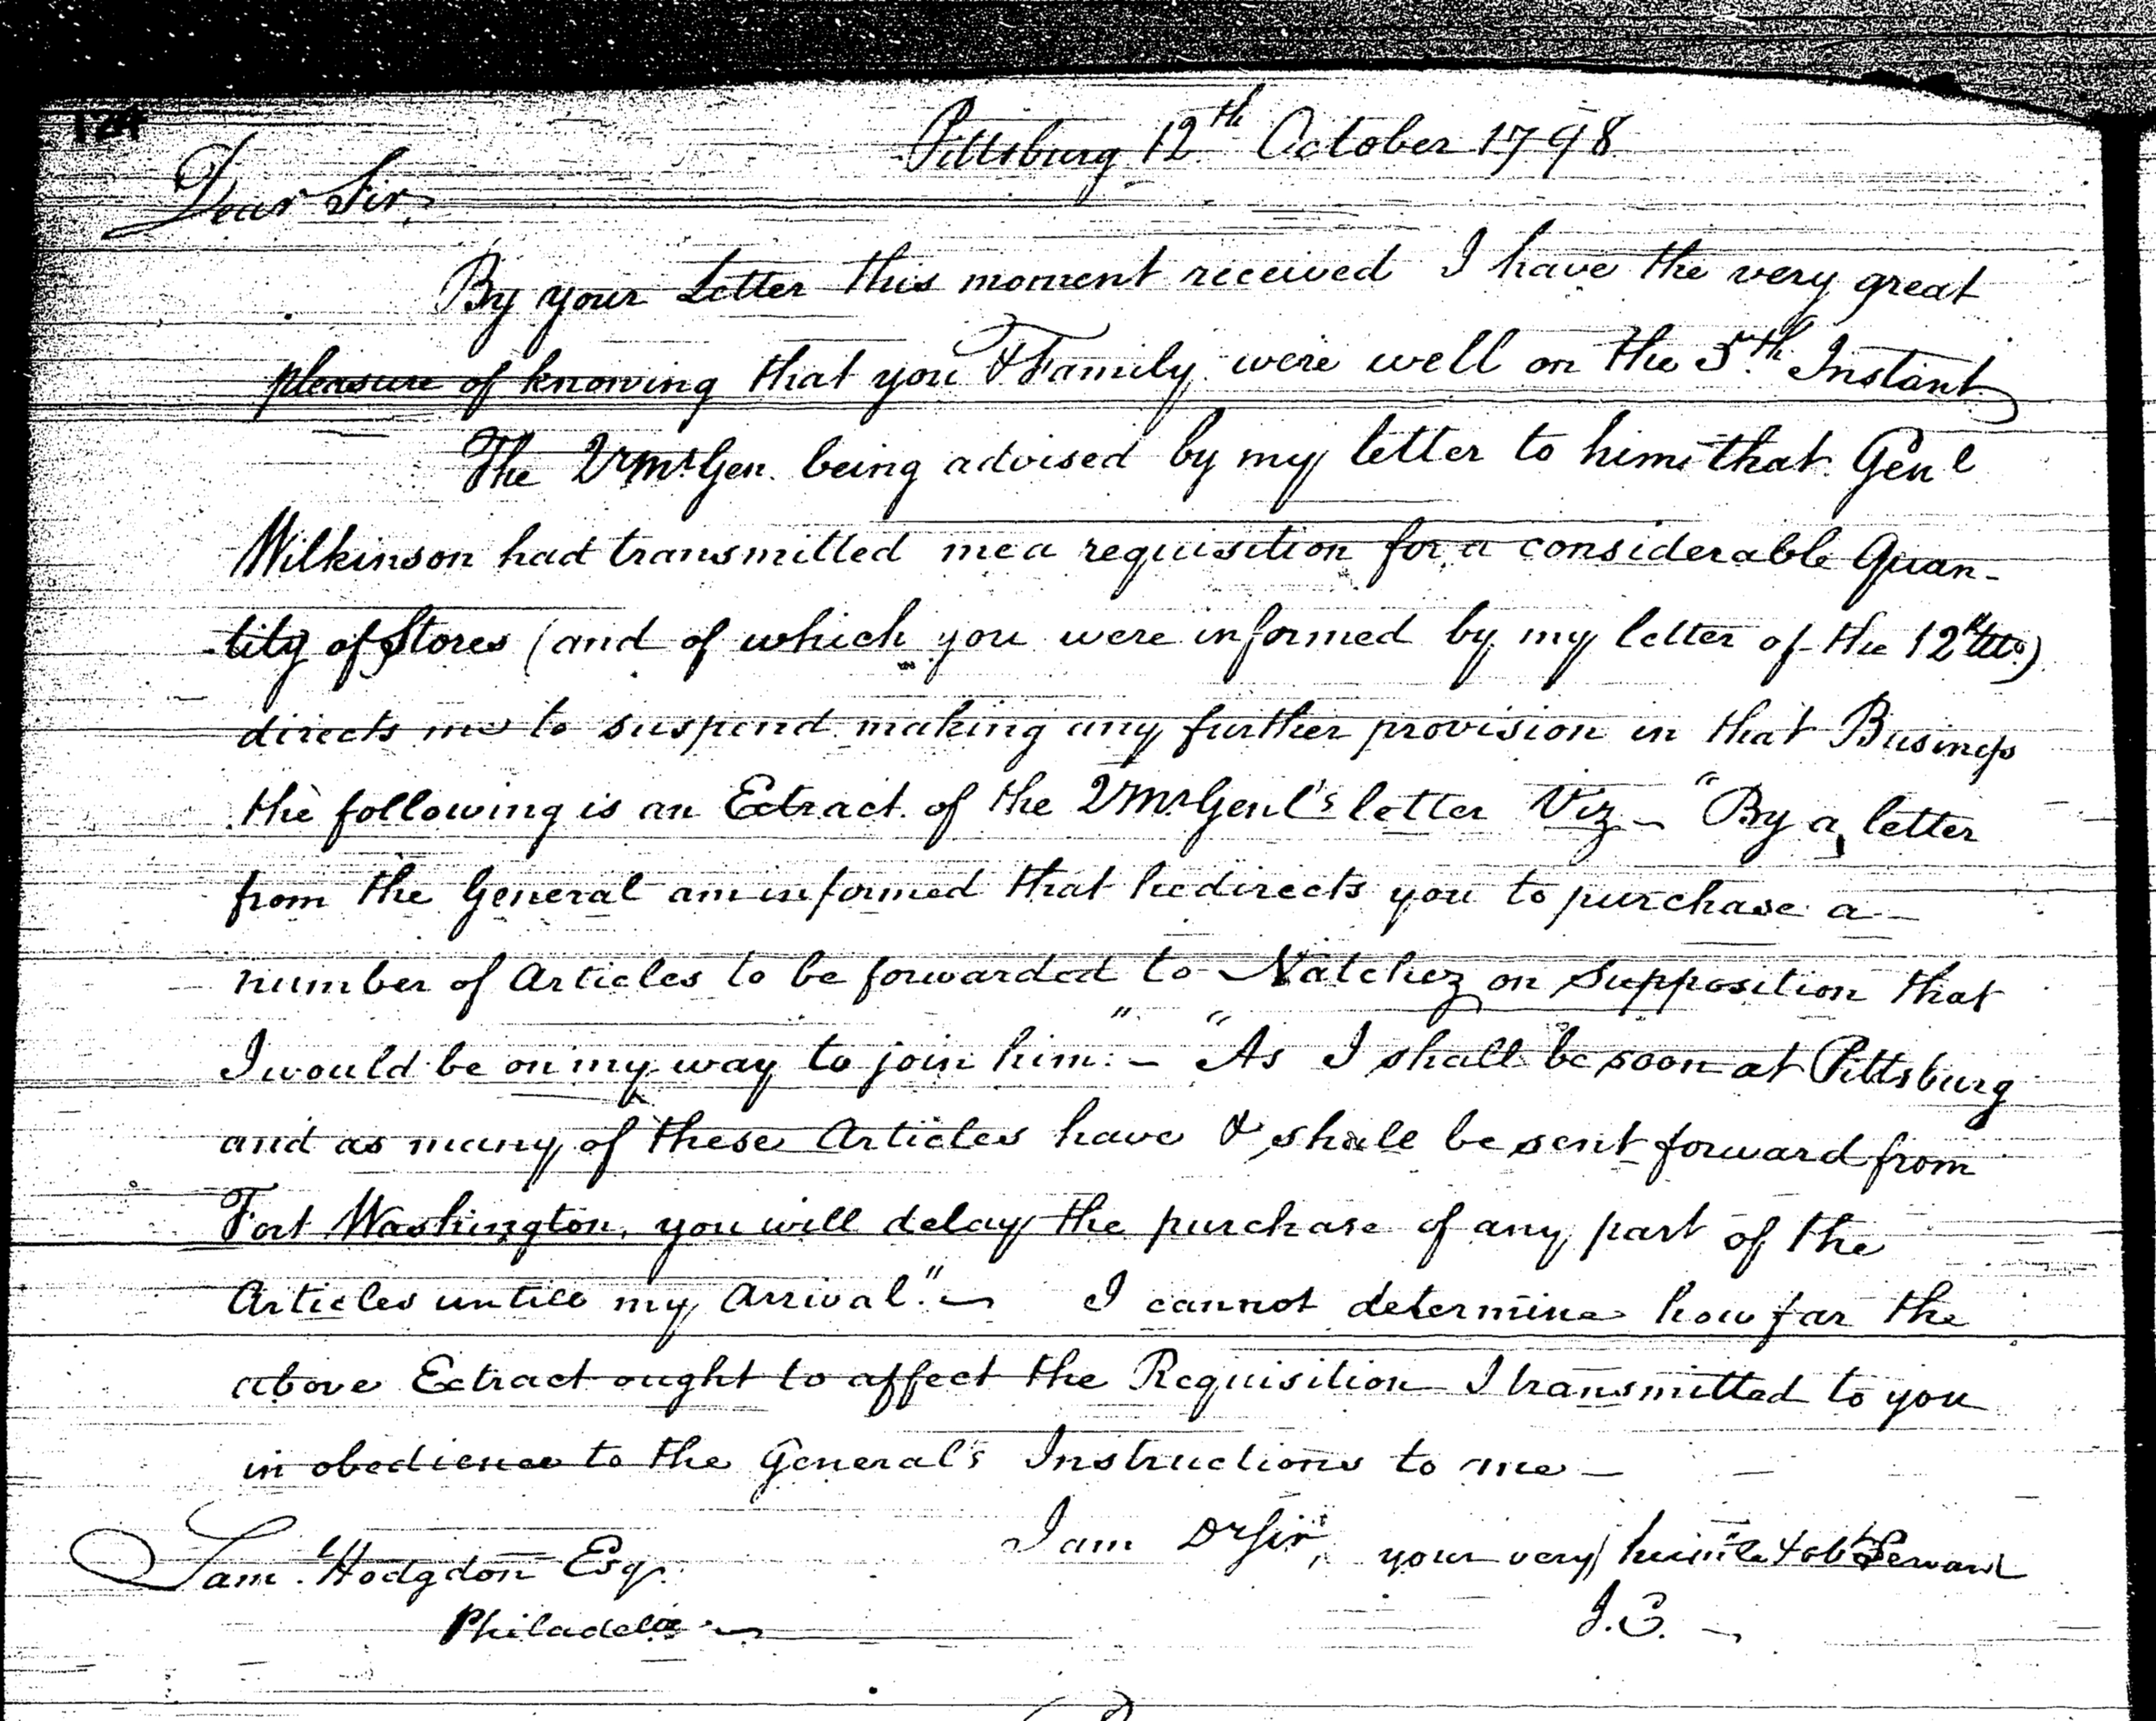 124
Pittsburg 12th October 1798
Dear Sir,
By your Letter this moment received I have the very great
pleasure of knowing that you & Family were well on the 5th Instant
The QrMrGen. being advised by my letter to him that Genl
Wilkinson had transmitted me a requisition for a considerable Quan-
tity of Stores (and of which you were informed by my letter of the 12th Ulto.)
directs me to suspend making any further provision in that Business
the following is an Extract of the QrMrGenl's letter Viz - "By a letter
from the General am informed that he directs you to purchase a -
number of Articles to be forwarded to Natchez on Supposition that
I would be on my way to join him." - "As I shall be soon at Pittsburg
and as many of these Articles have & shall be sent forward from
Fort Washington, you will delay the purchase of any part of the
Articles untill my Arrival." - I cannot determine how far the
above Extract ought to affect the Requisition I transmitted to you
in obedience to the General's Instructions to me -
I am Dr Sir, your very humle & obt Servant
Saml. Hodgdon Esqr.
Philadela -